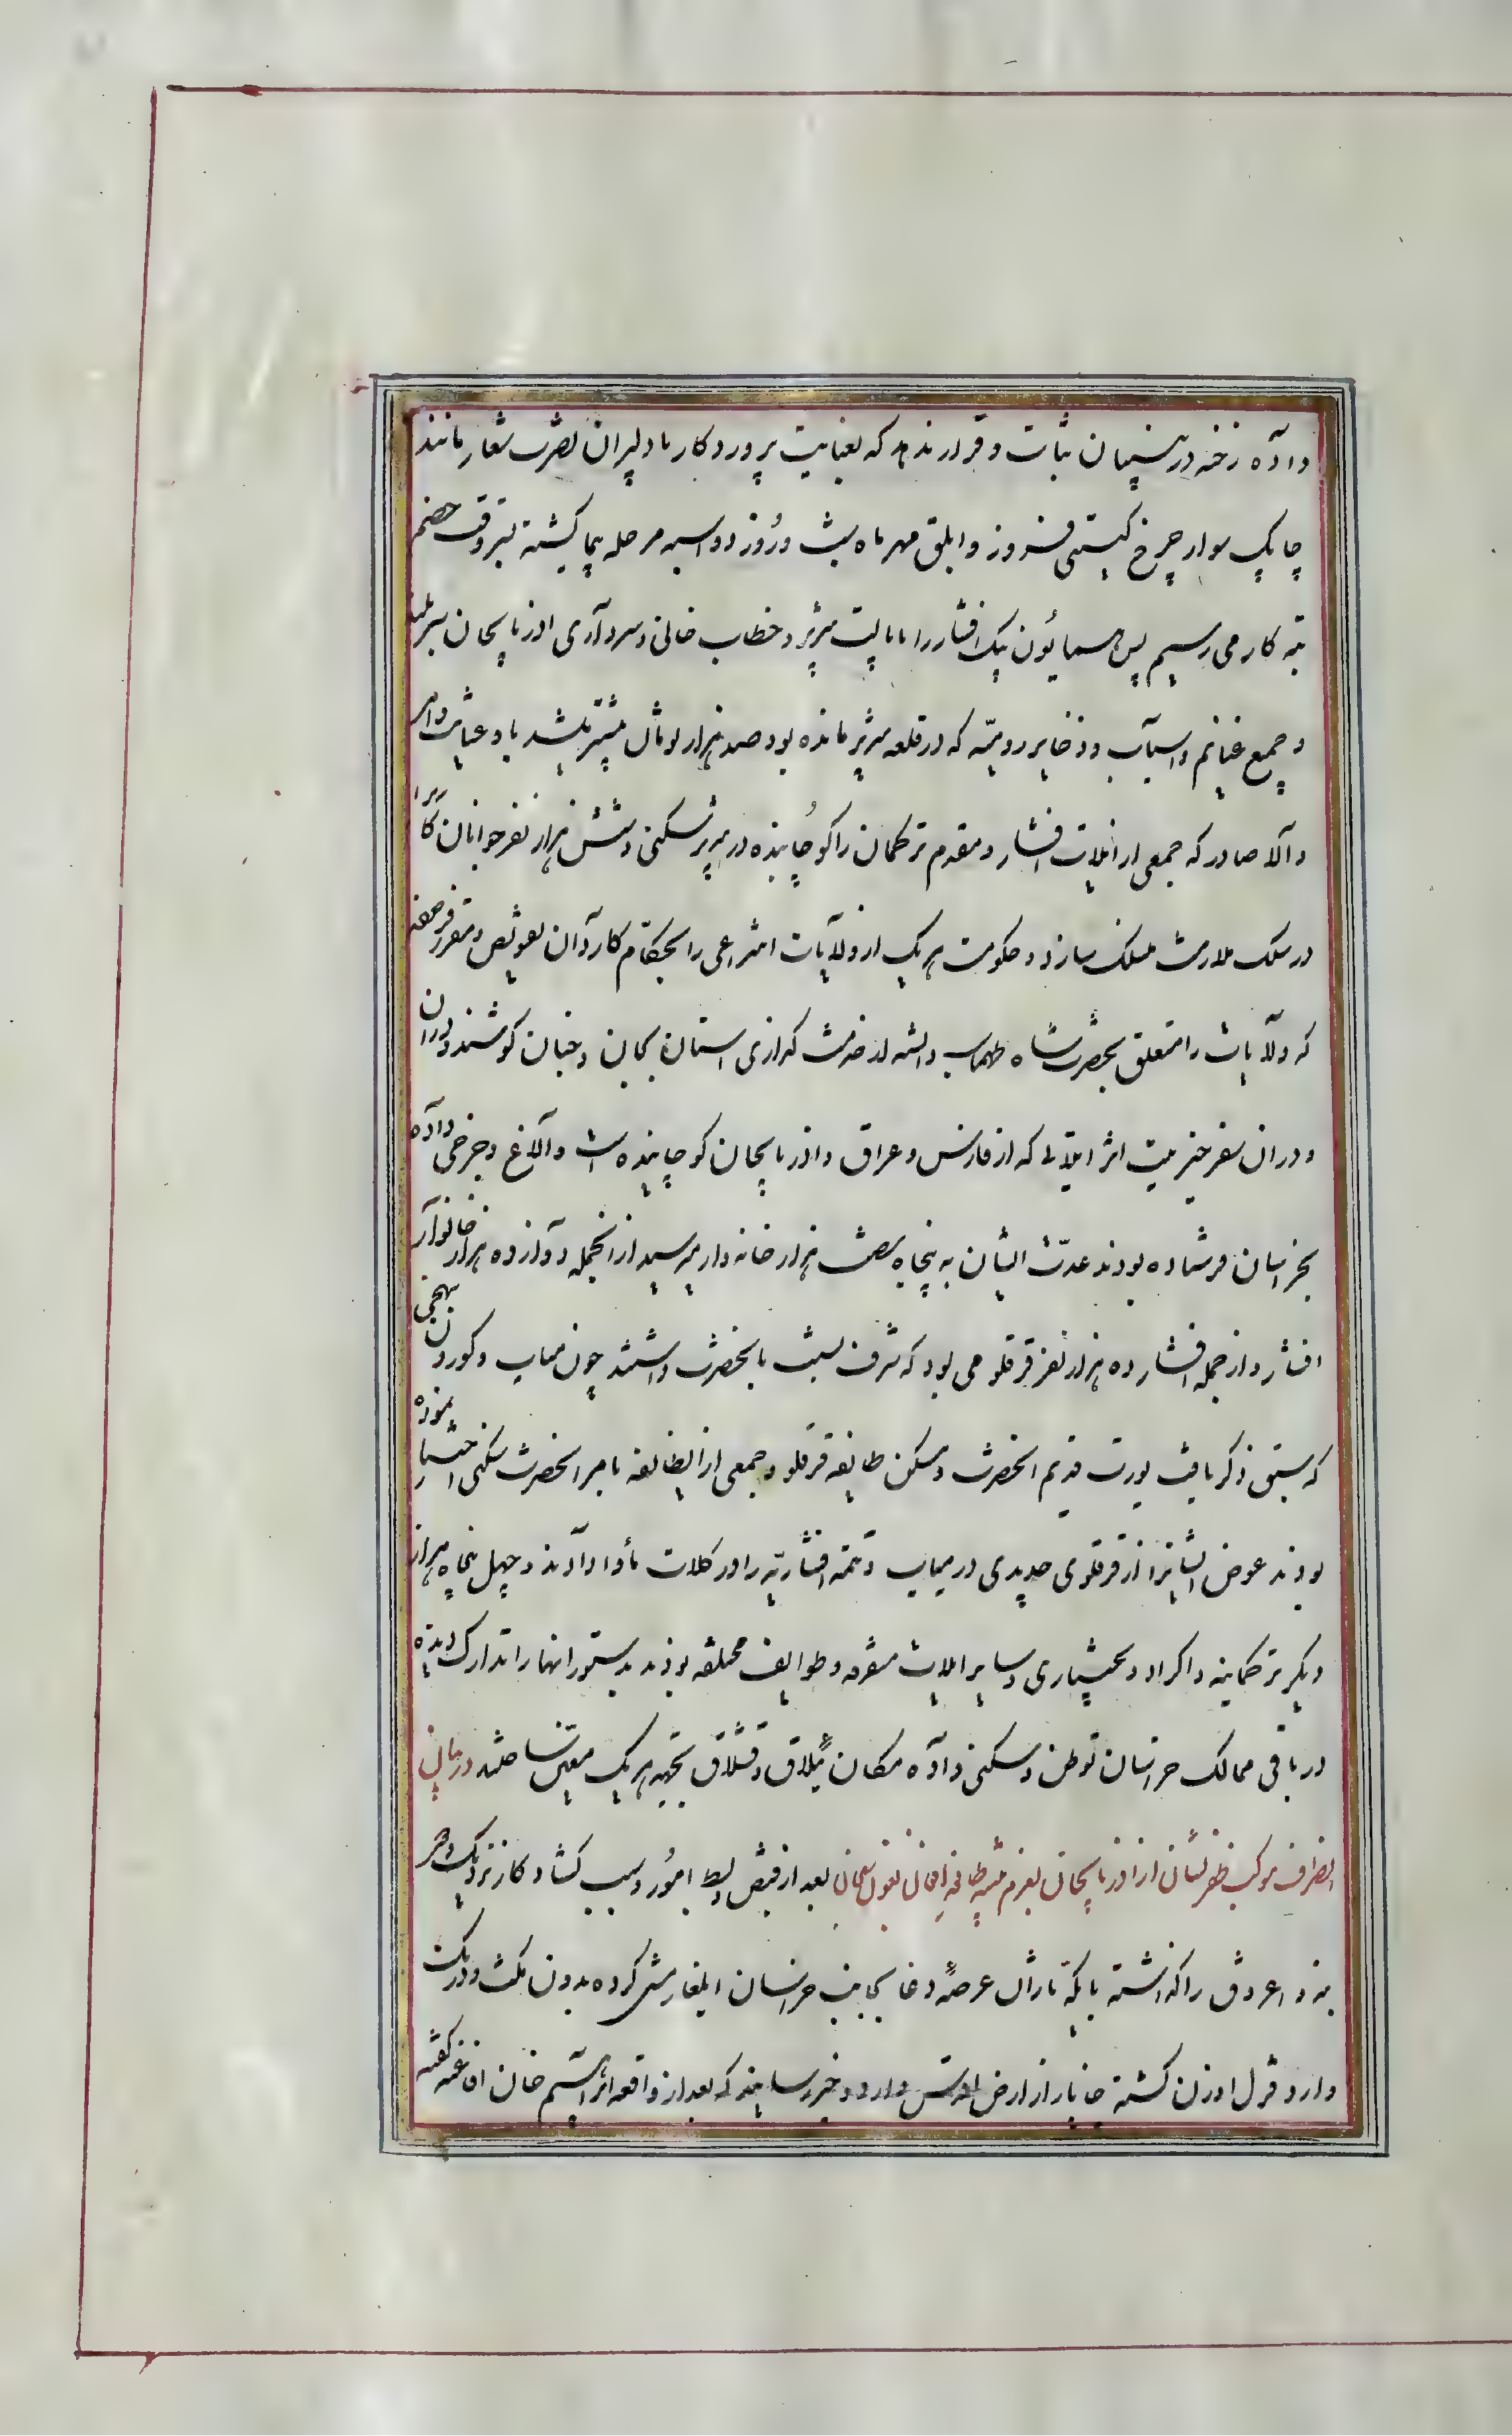 داده رخنه در بنیان ثبات و قرار ندهد که بعنایت پروردگار با دلیران نصرت شعار مانند
چابک سوار چرخ گیتی فروز و ابلق مهر ماه شب و روز دو اسبه مرحله پیما گشته بسر وقت خصم
تبه کار می رسیم پس بیک افشار را بایالت تبریز و خطاب خانی و سرداری اذربایجان سربلند
و جمیع غنایم و اسباب و ذخایر رومیه که در قلعه تبریز مانده بود صد هزار تومان بیشتر میشد باو عنایت و امر
والا صادر که جمعی از ایلات افشار و مقدم و ترکمان را کوچانیده در تبریز سکنی و شش هزار نفر جوانان کار
در سلک ملازمت منسلک سازد و حکومت هریک از ولایات انتزاعی را بحکام کاردان تفویض و مقرر فرمودند
که ولایات را متعلق بحضرت شاه طهماسب دانسته در خدمت گزاری استان بجان و جنان کوشند و دران
و دران سفر خیریت اثر ایلاتی که از فارس و عراق و اذربایجان کوچانیده و الاغ و خرجی داده
بخراسان فرستاده بودند عدت ایشان به پنجاه شصت هزار خانه وار میرسید ازانجمله دوازده هزار خانوار
افشار و از جمله افشار ده هزار نفر قرقلو می بود که شرف نسبت بانحضرت داشتند چون میاب و کوردون بنهجی
که سبق ذکر یافت یورت قدیم انحضرت و مسکن طایفه قرقلو و جمعی از انطایفه با مر انحضرت سکنی اختیار نموده
بودند عوض ایشانرا از قرقلوی جدیدی در میاب و تتمه افشاریه را در کلات مأوا دادند و چهل پنجاه هزار
دیگر تراکمه و اکراد و بختیاری و سایر ایلات متفرقه و طوایف مختلفه بودند بدستور انها را تدارک دیده
در باقی ممالک خراسان توطن و سکنی داده مکان ییلاق و قشلاق بجهة هریک معین ساختند در بیان
انصراف موکب ظفر نشان از اذربایجان بعزم تنبیه طایفه افغان بعد از قبض و بسط امور و سبب کشاد کار نزدیک و دور
بنه و اغروق را گذاشته با یکه تازان عرصه وغا بجانب خراسان ایلغار مشی کرده بدون مکث و درنگ
وارد قزل اوزن گشته چاپار از ارض اقدس وارد و خبر رسانید که بعد از واقعه ابراهیم خان افاغنه گفته